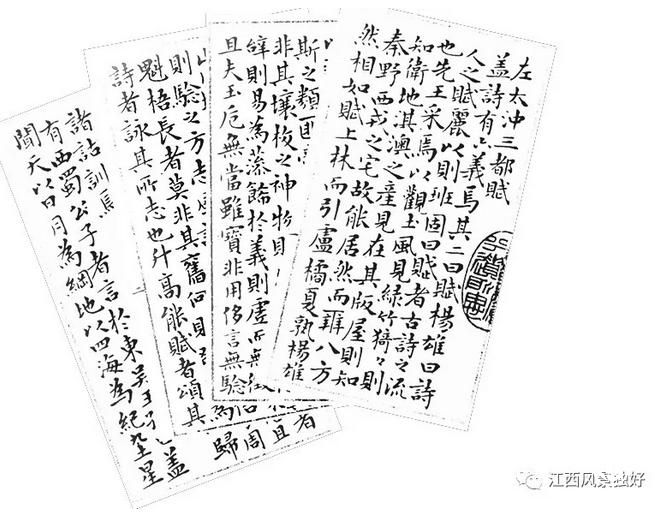 左太沖三都賦
蓋詩有六義焉其二曰賦楊雄曰詩
人之賦麗以則班固曰賦者古詩之流
也先王采焉以觀土風見綠竹猗々則
知衛地淇澳之產見在其版屋則知
秦野西戎之宅故能居然而辨八方
然相如賦上林而引盧橘夏熟楊雄
斯之類匪
非其壤校之神物則
辞則易為藻餙於義則虛而無徵
且夫玉卮無當雖寶非用侈言無驗
則驗之方志
魁梧長者莫非其舊何則
詩者詠其所志也升高能賦者頌其
者
周
歸
諸詁訓焉
有西蜀公子者言於東吳王孫蓋
聞天以日月為綱地以四海為紀九土星
江西风景独好